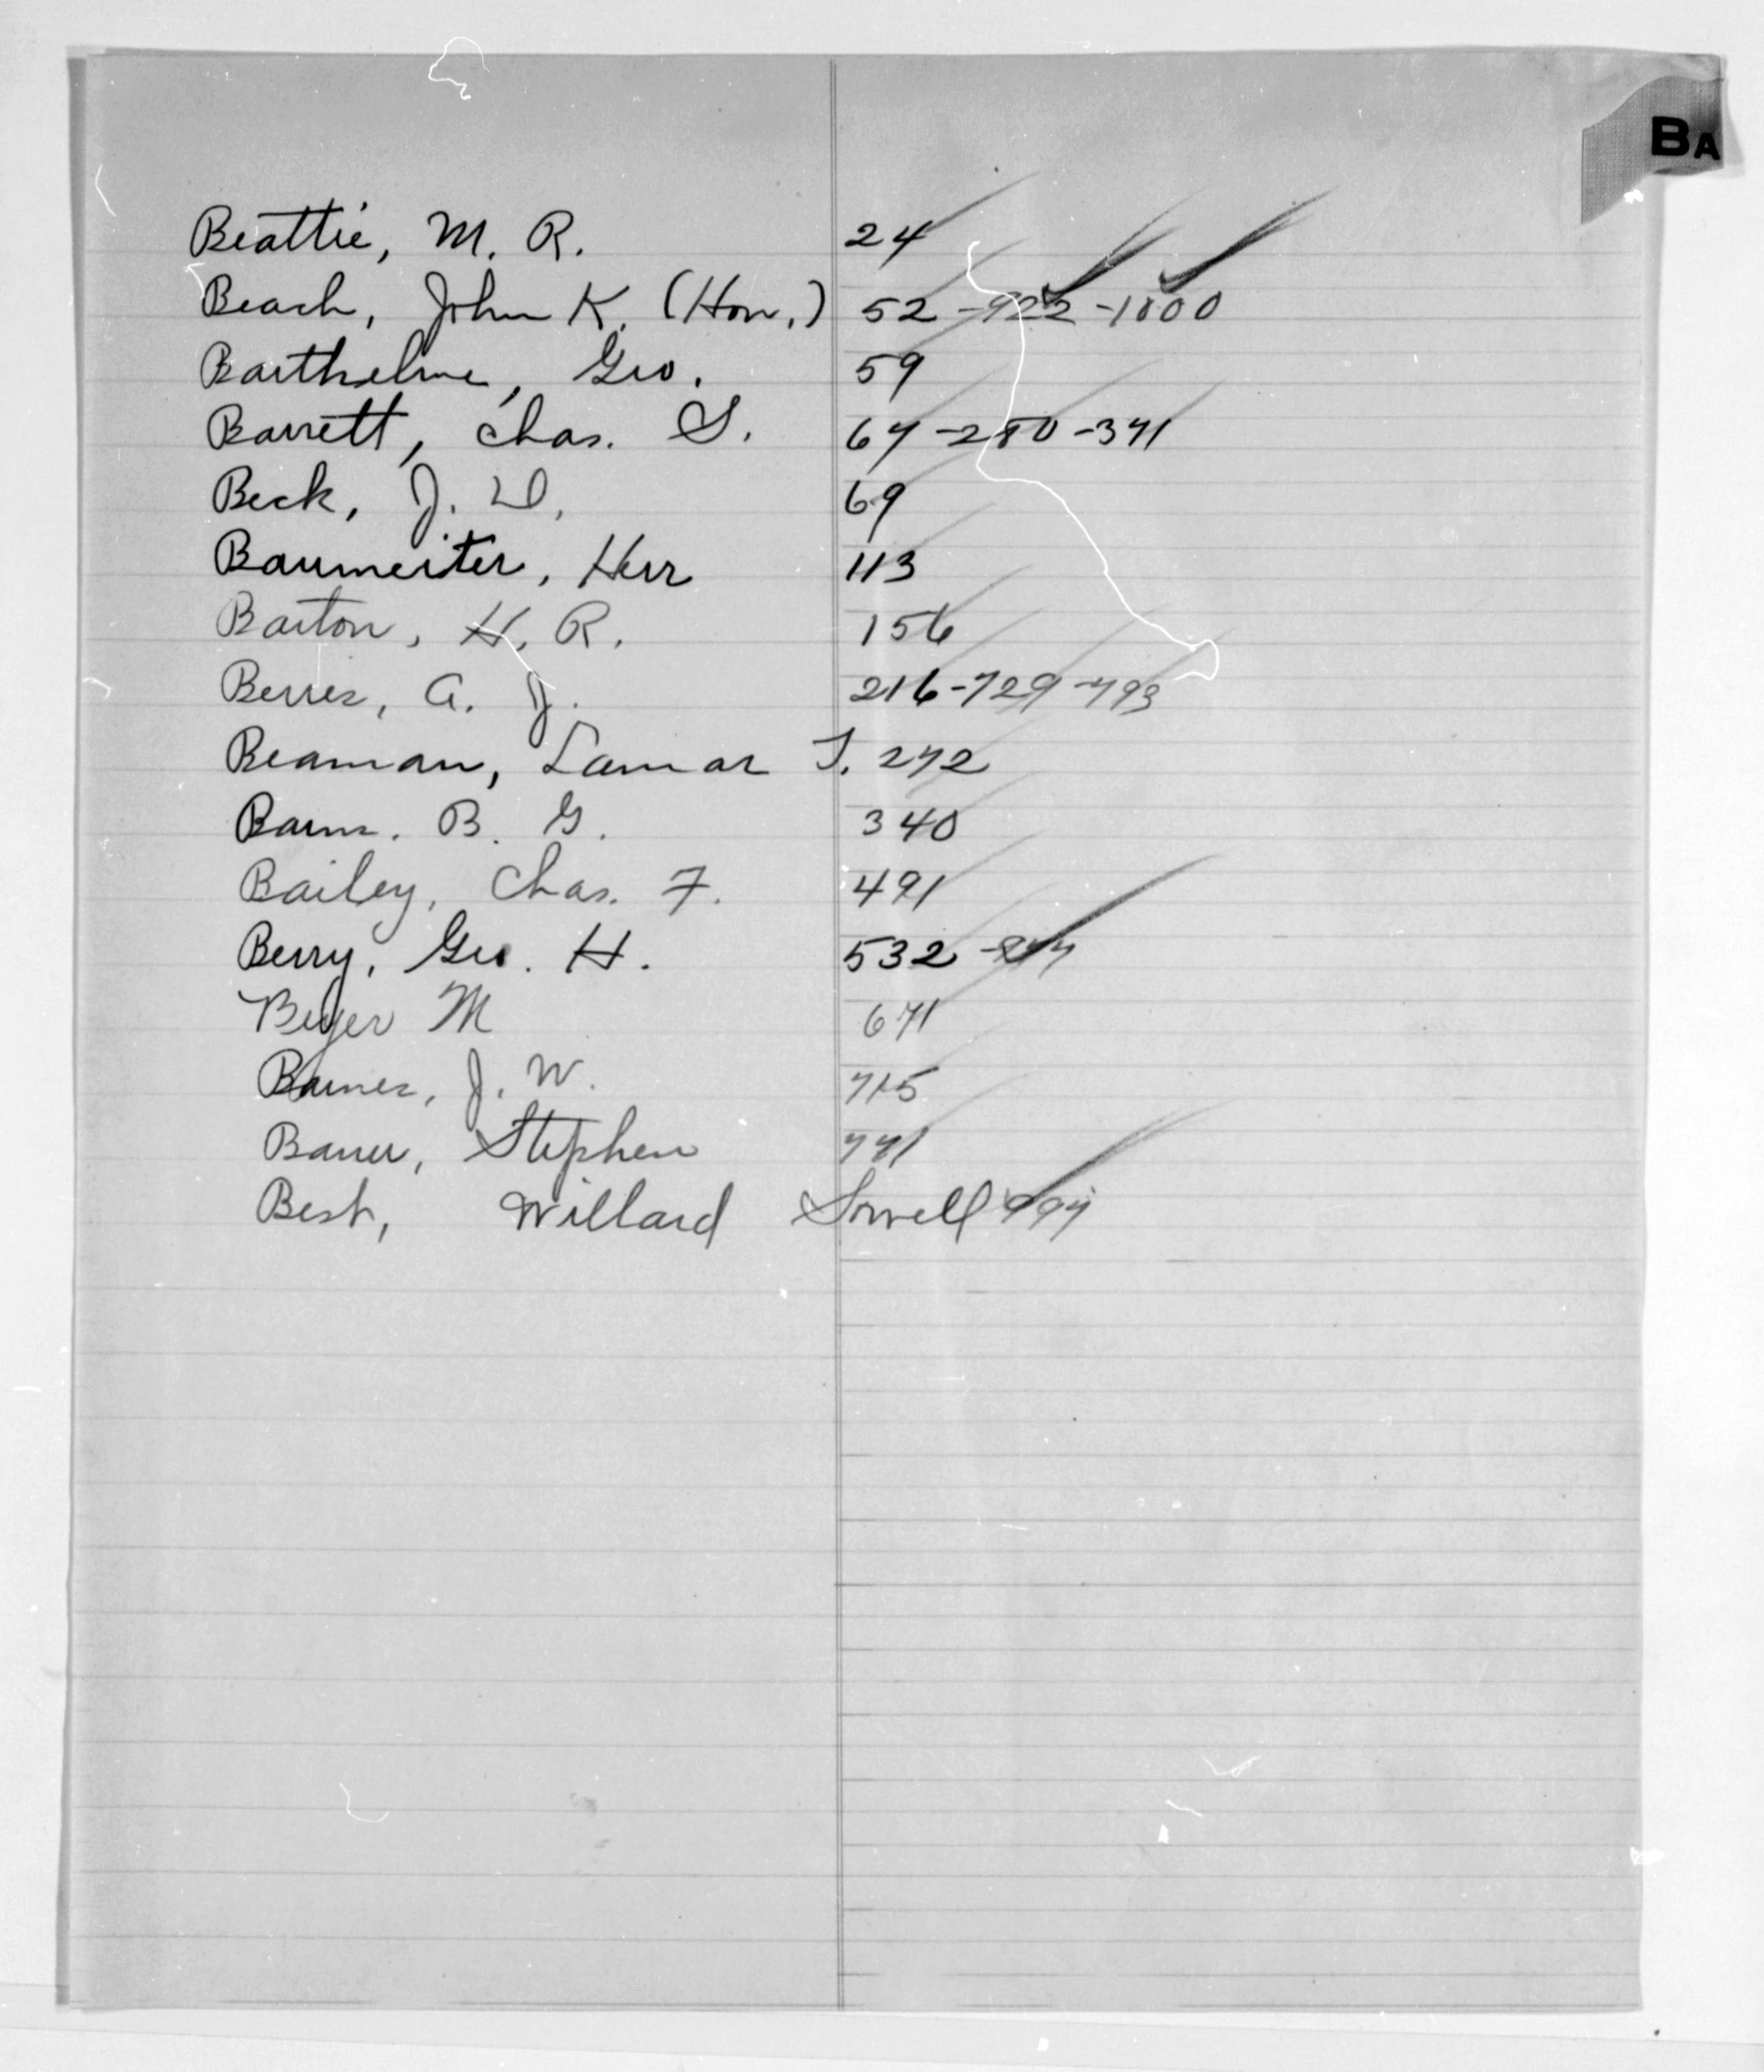 BA
Beattie, M. R. 24
Beach, John K. (Hon.) 52 -922 -1000
Barthelme, Geo. 59
Barrett, Chas. S. 67 -280 -371
Beck, J. D. 69
Baumeister, Herr 113
Barton, H. R. 156
Berres, A. J. 216 -729 -793
Beaman, Lamar T. 272
B. G. 340
Bailey, Chas. F. 491
Berry, Geo. H. 532
Beyer M 671
Barnes, J. W. 715
Bauer, Stephen 771
Best, Willard Sowell 997